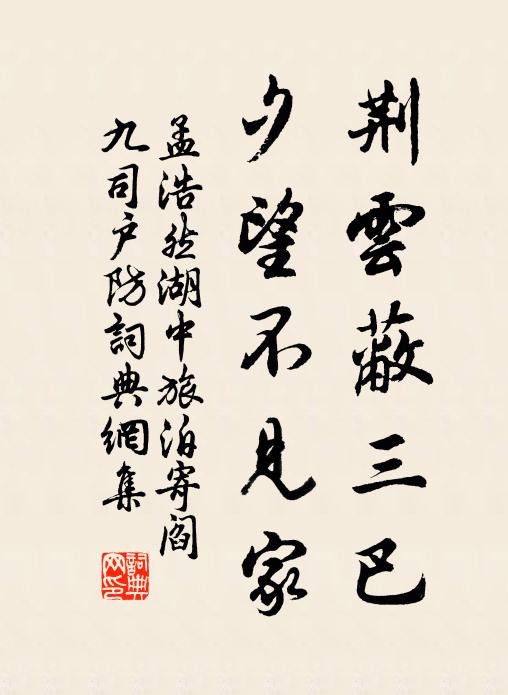 荆雲蔽三巴
夕望不見家
孟浩然湖中旅泊寄閻
九司户防詞典網集
詞典网印